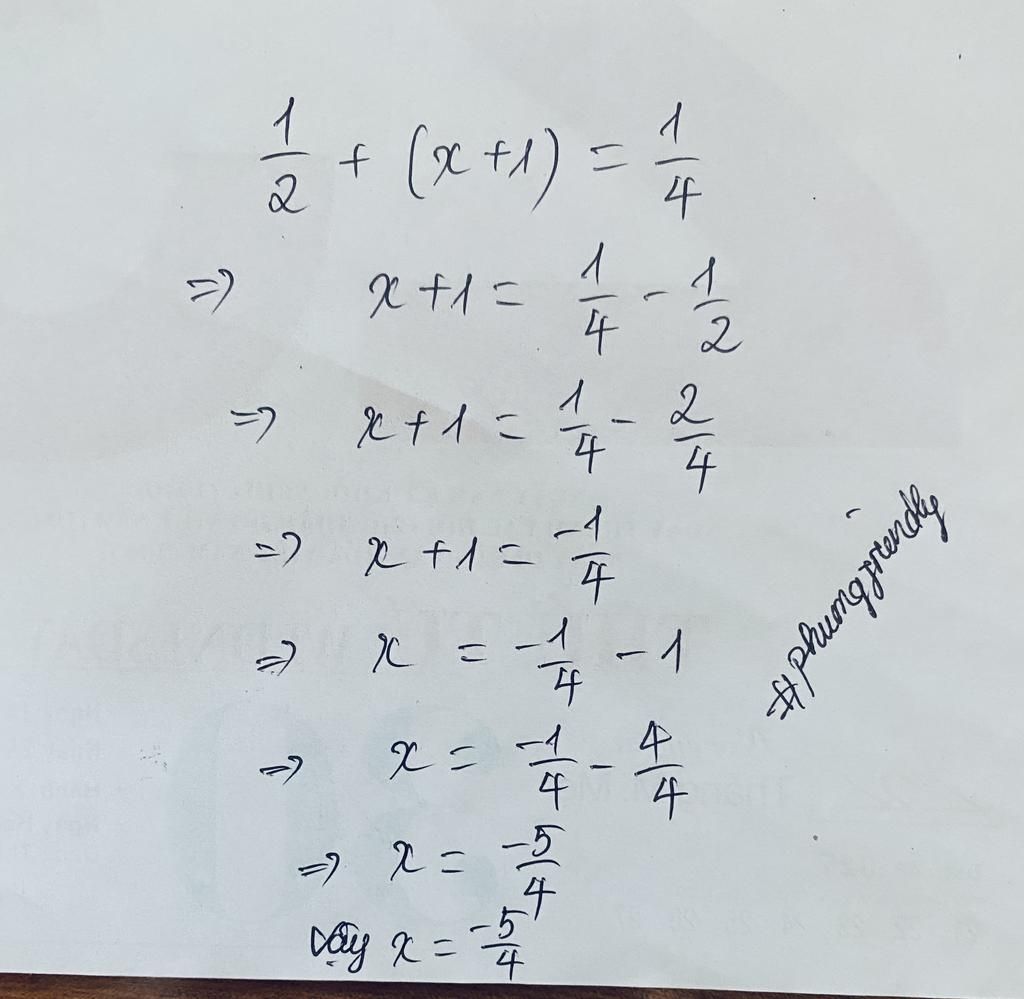 1/2 + (x+1) = 1/4
=> x+1 = 1/4 - 1/2
=> x+1 = 1/4 - 2/4
=> x+1 = -1/4
=> x = -1/4 - 1
=> x = -1/4 - 4/4
=> x = -5/4
Vậy x = -5/4
#phungfriendly